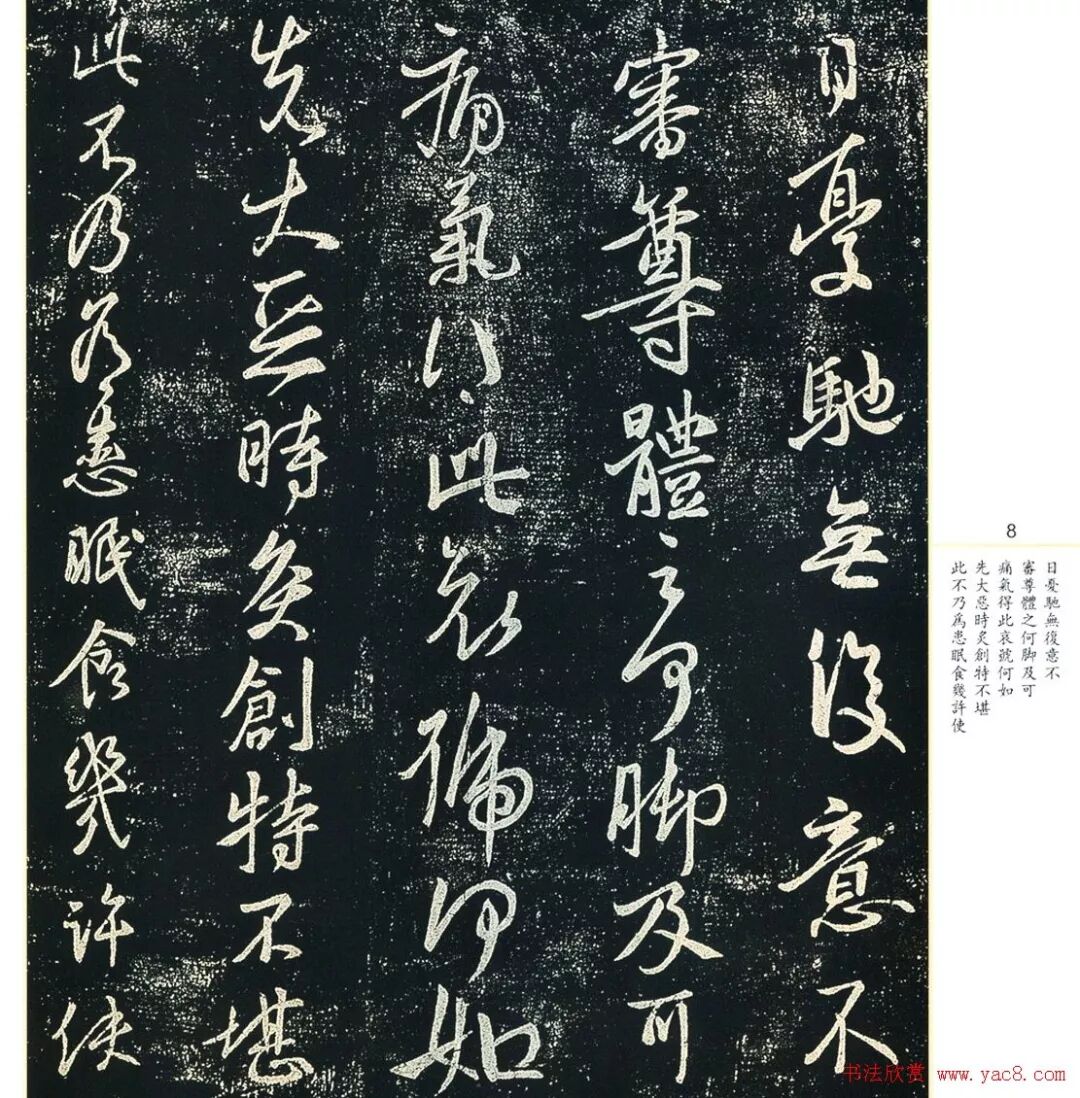 日憂馳無復意不
審尊體之何脚及可
痛氣得此哀號何如
先大惡時炙創特不堪
此不乃爲患眠食幾許使
8
日憂馳無復意不
審尊體之何脚及可
痛氣得此哀號何如
先大惡時炙創特不堪
此不乃爲患眠食幾許使
书法欣赏 www.yac8.com